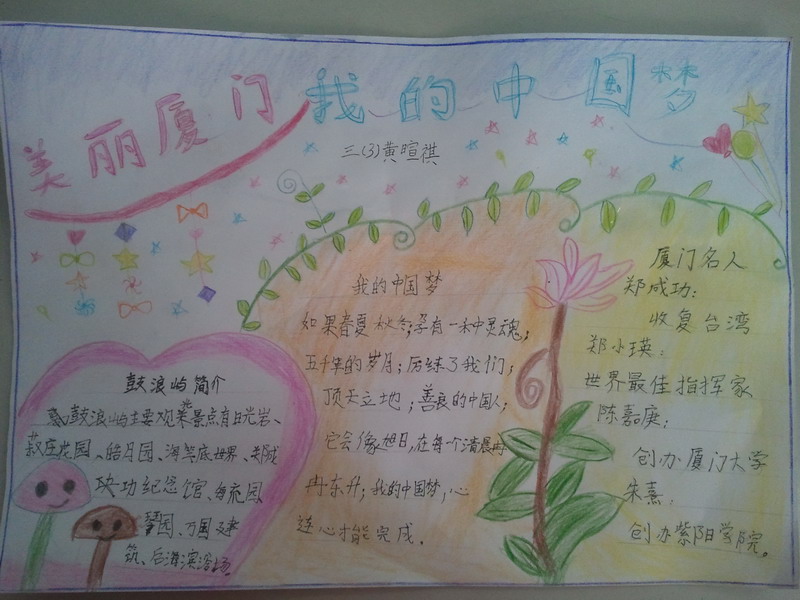 美丽厦门
我的中国梦
三(3)黄暄祺
鼓浪屿简介
鼓浪屿主要观光景点有日光岩、
菽庄花园、皓月园、海底世界、郑成
功纪念馆、
琴园、万国建
筑、后海滨浴场。
我的中国梦
如果春夏秋冬;孕有一种灵魂;
五千年的岁月;历练了我们;
顶天立地;善良的中国人;
它会像旭日,在每一个清晨冉
冉东升;我的中国梦,心
连心才能完成。
厦门名人
郑成功:
收复台湾
郑小瑛:
世界最佳指挥家
陈嘉庚:
创办厦门大学
朱熹:
创办紫阳学院。